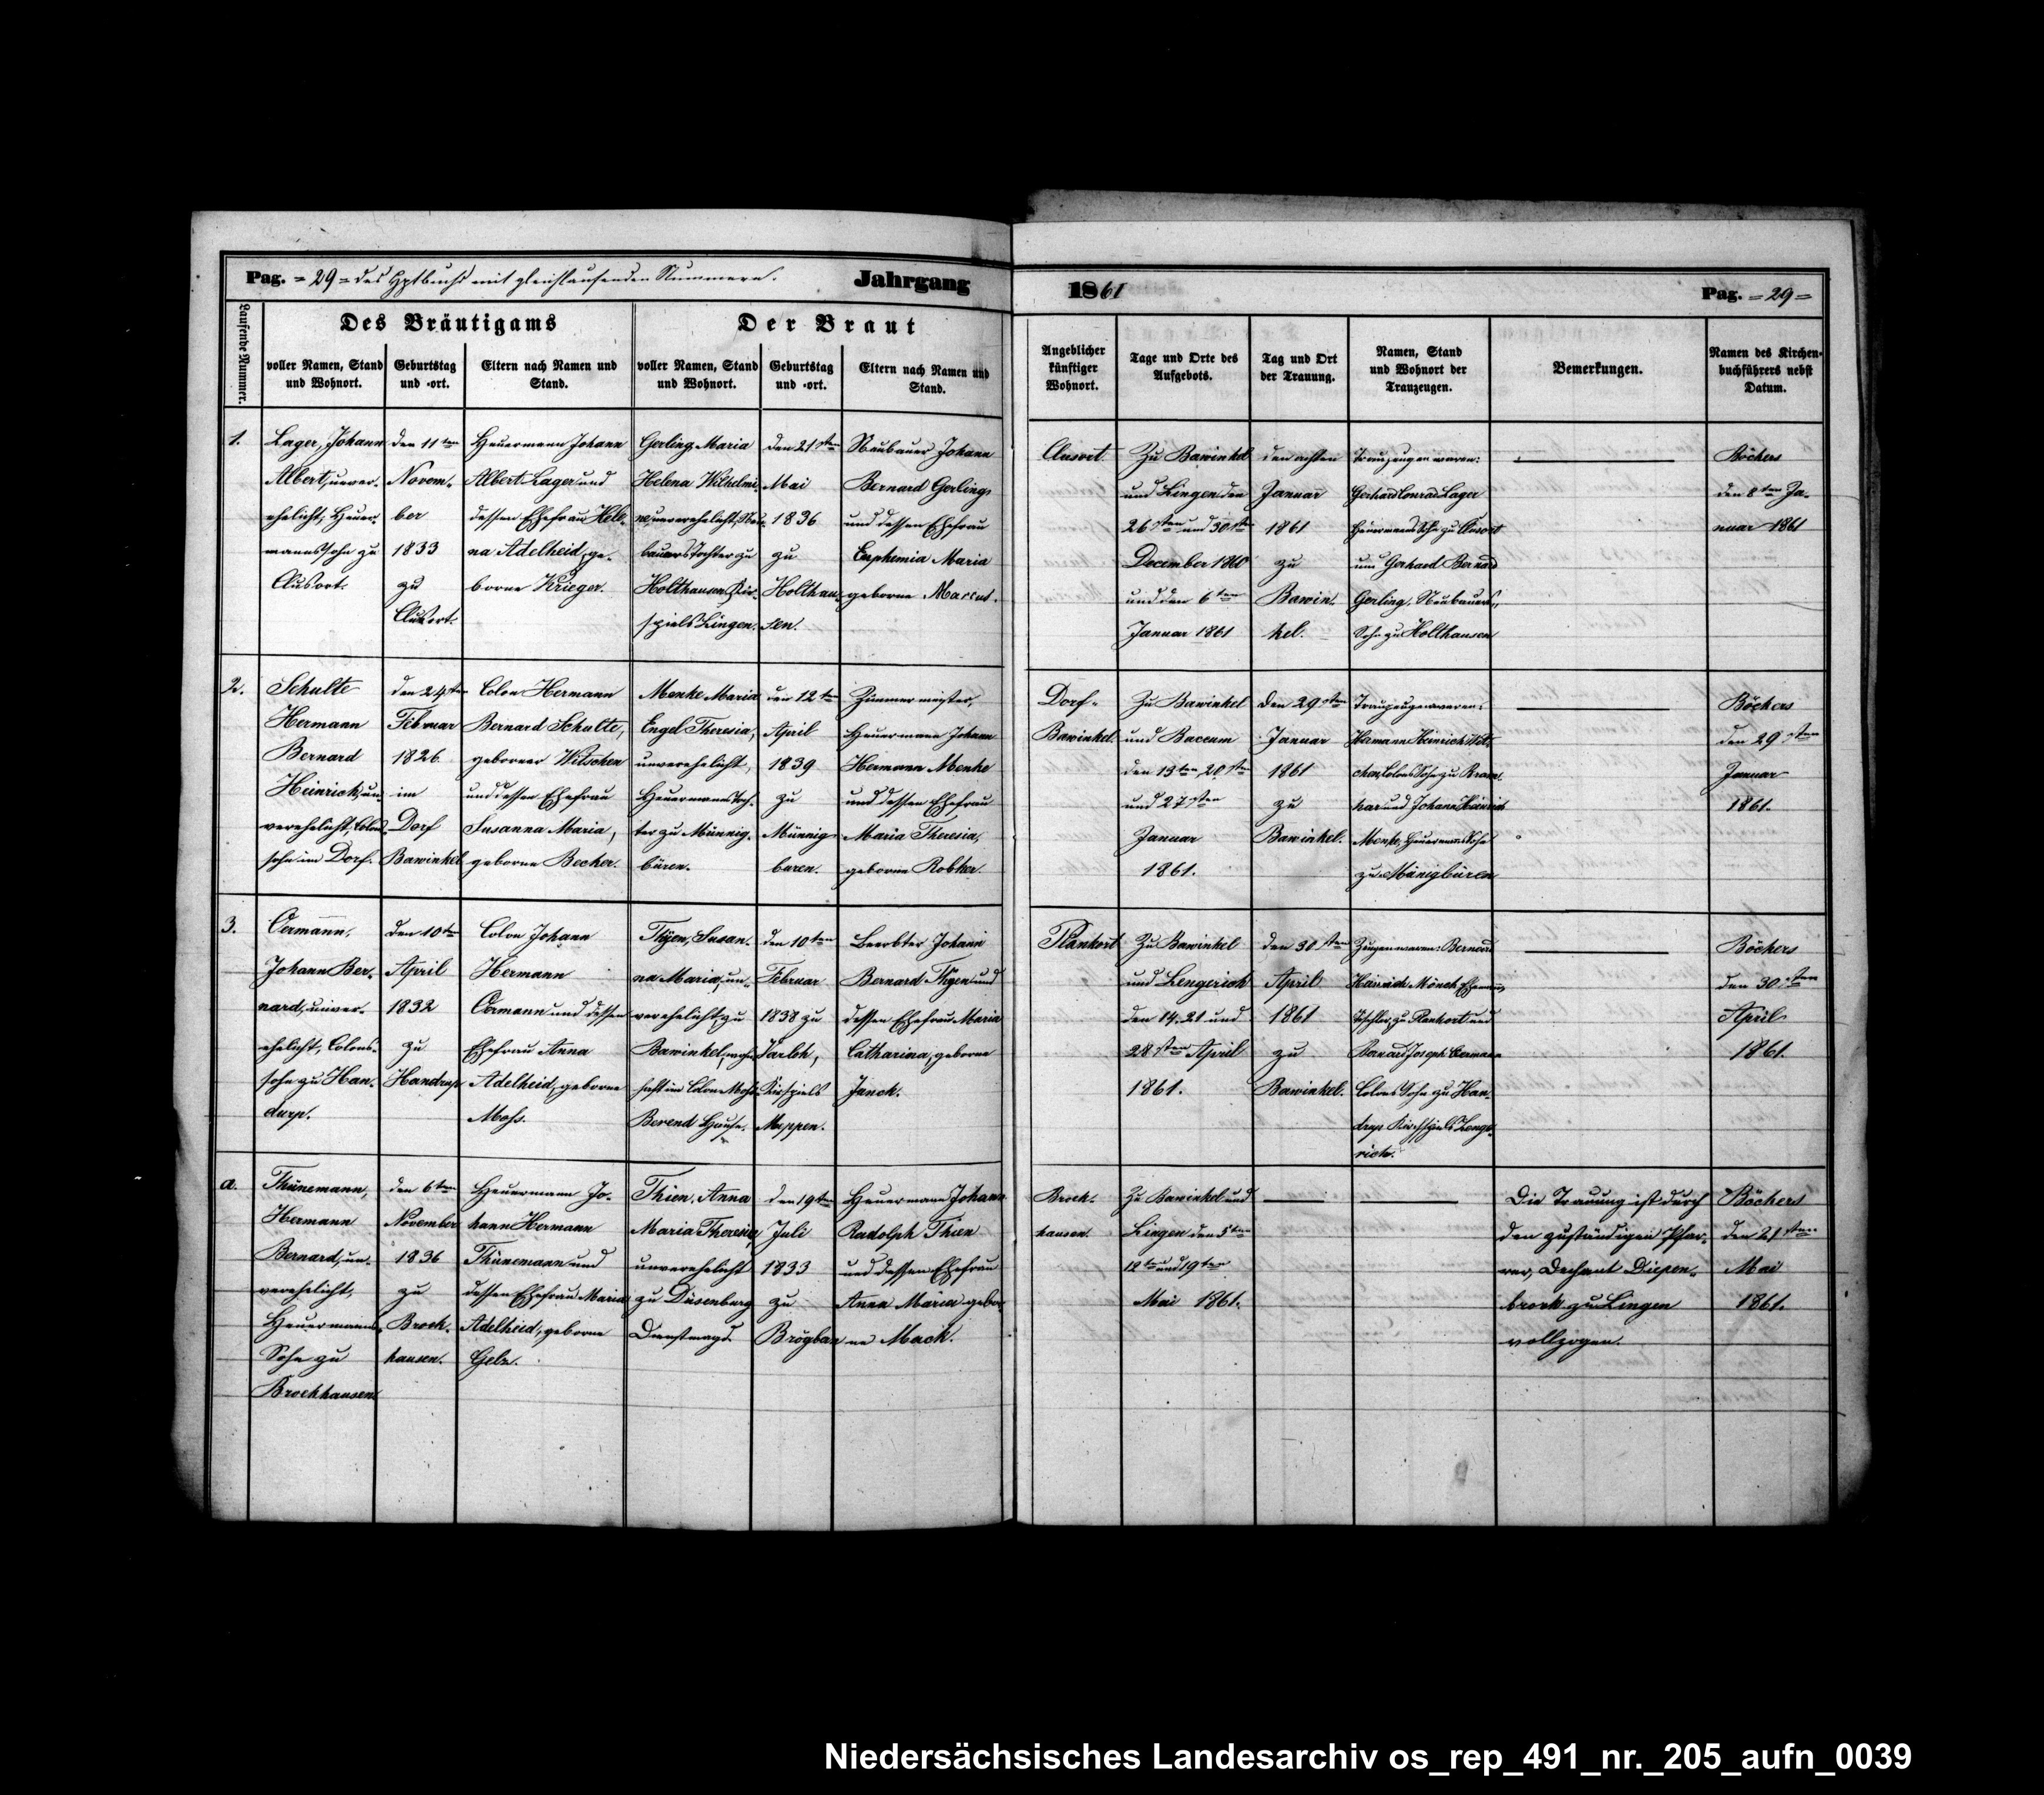 Pag. = 29 = des Hptbuchs mit gleichlaufenden Nummern.
Jahrgang
1861
Pag. = 29 =
Laufende Nummer.
Des Bräutigams
Der Braut
voller Namen, Stand
und Wohnort.
Geburtstag
und -ort.
Eltern nach Namen und
Stand.
voller Namen, Stand
und Wohnort.
Geburtstag
und -ort.
Eltern nach Namen und
Stand.
Angeblicher
künftiger
Wohnort.
Tage und Orte des
Aufgebots.
Tag und Ort
der Trauung.
Namen, Stand
und Wohnort der
Trauzeugen.
Bemerkungen.
Namen des Kirchen-
buchführers nebst
Datum.
1.
Lager, Johann
Albert, unver-
ehelicht, Heuer-
manns Sohn zu
Clusort.
den 11ten
Novem-
ber
1833
zu
Clusort.
Heuermann Johann
Albert Lager und
dessen Ehefrau Hele-
na Adelheid, ge-
borne Krieger.
Gerling, Maria
Helena Wilhelmi-
ne, unverehelicht, Neu-
bauers Tochter zu
Holthausen, Kir-
spiels Lingen.
den 21sten
Mai
1836
zu
Holthau-
sen.
Neubauer Johann
Bernard Gerling
und dessen Ehefrau
Euphemia Maria
geborne
Clusort
Zu Bawinkel
und Lingen den
26sten und 30sten
December 1860
und den 6ten
Januar 1861
den achten
Januar
1861
zu
Bawin-
kel.
Trauzeugen waren:
Gerhard Conrad Lager
Heuermanns Sohn zu Clusort
und Gerhard Bernard
Gerling, Neubauers
Sohn zu Holthausen
Böchers
den 8ten Ja-
nuar 1861
2.
Schulte
Hermann
Bernard
Heinrich, un-
verehelicht, Colons
sohn im Dorf.
den 24sten
Februar
1826
im
Dorf
Bawinkel
Colon Hermann
Bernard Schulte,
geborner Witschen
und dessen Ehefrau
Susanna Maria,
geborne Becker.
Menke Maria
Engel Theresia,
unverehelicht,
Heuermanns Toch-
ter zu Münnig-
büren.
den 12ten
April
1839
zu
Münnig
buren.
Zimmermeister,
Heuermann Johann
Hermann Menke
und dessen Ehefrau
Maria Theresia,
geborne Robker.
Dorf-
Bawinkel.
Zu Bawinkel
und Baccum
den 13ten 20sten
und 27sten
Januar
1861.
den 29sten
Januar
1861
zu
Bawinkel.
Trauzeugen waren:
Hermann Heinrich Wit-
schen, Colons Sohn zu
und Johann Heinrich
Menke, Heuermanns Sohn
zu Münigbüren
Böchers
den 29sten
Januar
1861.
3.
Oermann,
Johann Ber-
nard, unver-
ehelicht, Colons-
sohn zu Han-
drup.
den 10ten
April
1832
zu
Handrup
Colon Johann
Hermann
Oermann und dessen
Ehefrau Anna
Adelheid, geborne
Mohs.
Thyen, Susan-
na Maria, un-
verehelicht, zu
Bawinkel, wohn-
haft im Colon Mohs
Berend Hause.
den 10ten
Februar
1838 zu
Varloh,
Kirspiels
Meppen.
Beerbter Johann
Bernard Thyen und
dessen Ehefrau Maria
Catharina, geborne
Janck.
Plankort
Zu Bawinkel
und Lengerich
den 14. 21 und
28sten April
1861.
den 30sten
April
1861
zu
Bawinkel.
Zeugen waren: Bernard
Heinrich Mönch, Ehemann,
Tischler, zu Plankort und
Bernard Joseph Oermann
Colons Sohn zu Han-
drup Kirchspiels Lenge-
rich.
Böchers
den 30sten
April
1861.
a.
Thünemann,
Hermann
Bernard, un-
verehelicht,
Heuermanns
Sohn zu
Brockhausen
den 6ten
November
1836
zu
Brock-
hausen.
Heuermann Jo-
hann Hermann
Thünemann und
dessen Ehefrau Maria
Adelheid, geborne
Gelz.
Thien, Anna
Maria Theresia,
unverehelicht
zu Düsenburg
Dienstmagd.
den 19ten
Juli
1833
zu
Brögbern
Heuermann Johann
Radolph Thien
und dessen Ehefrau
Anna Maria gebor-
ne Mack.
Brock-
hausen.
Zu Bawinkel und
Lingen den 5ten
12ten und 19ten
Mai 1861.
Die Trauung ist durch
den zuständigen Pfar-
rer, Dechant Diepen-
brock zu Lingen
vollzogen.
Böchers
den 21sten
Mai
1861.
Niedersächsisches Landesarchiv os_rep_491_nr._205_aufn_0039